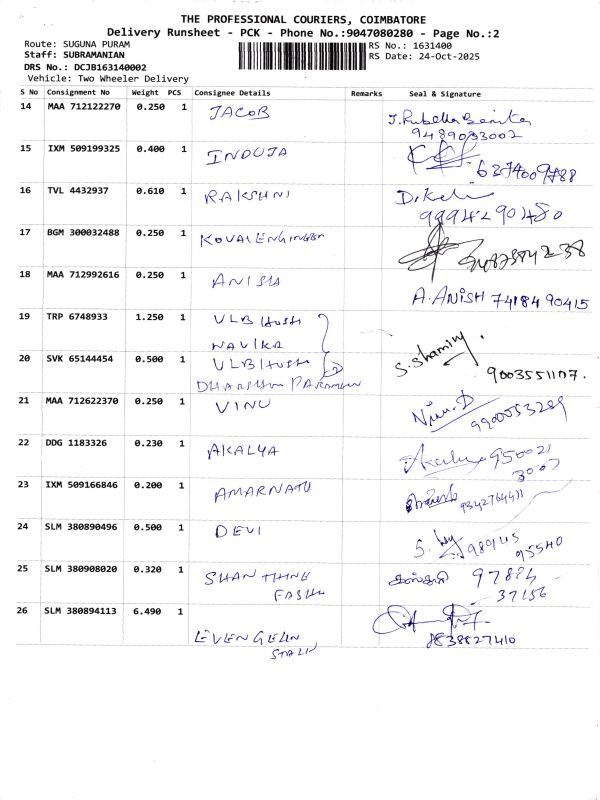 THE PROFESSIONAL COURIERS, COIMBATORE
Delivery Runsheet - PCK - Phone No.:9047080280 - Page No.:2
Route: SUGUNA PURAM
Staff: SUBRAMANIAN
DRS No.: DCJB163140002
Vehicle: Two Wheeler Delivery
RS No.: 1631400
RS Date: 24-Oct-2025
S No Consignment No Weight PCS Consignee Details Remarks Seal & Signature
14 MAA 712122270 0.250 1 JACOB
9489033002
15 IXM 509199325 0.400 1 INDUJA 6374009788
16 TVL 4432937 0.610 1 RAKSHNI
9994290480
17 BGM 300032488 0.250 1
18 MAA 712992616 0.250 1 ANISH A. ANISH 7418490415
19 TRP 6748933 1.250 1 VLB
NAVIKA
20 SVK 65144454 0.500 1 VLB
S. Shaminy
9003551107.
21 MAA 712622370 0.250 1 VINU
9900053289
22 DDG 1183326 0.230 1 AKALYA
950021
3007
23 IXM 509166846 0.200 1 AMARNATH
9342764411
24 SLM 380890496 0.500 1 DEVI
98945
95540
25 SLM 380908020 0.320 1
97884
37156
26 SLM 380894113 6.490 1
8838827410